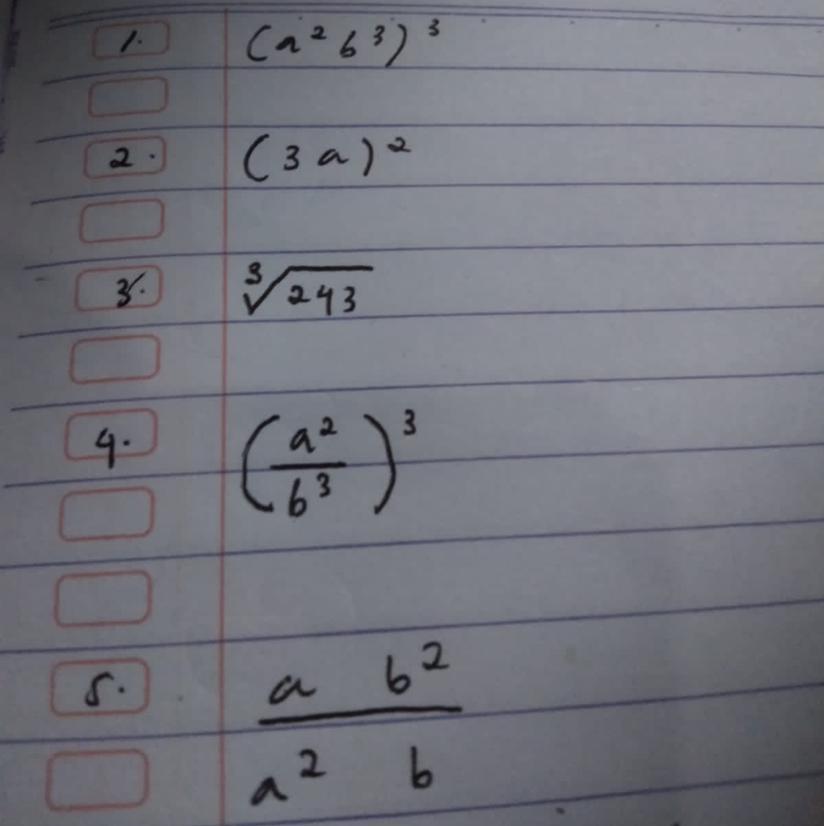 1. (a² b³)³
2. (3a)²
3. ∛243
4. (a²/b³)³
5. a b²
a² b